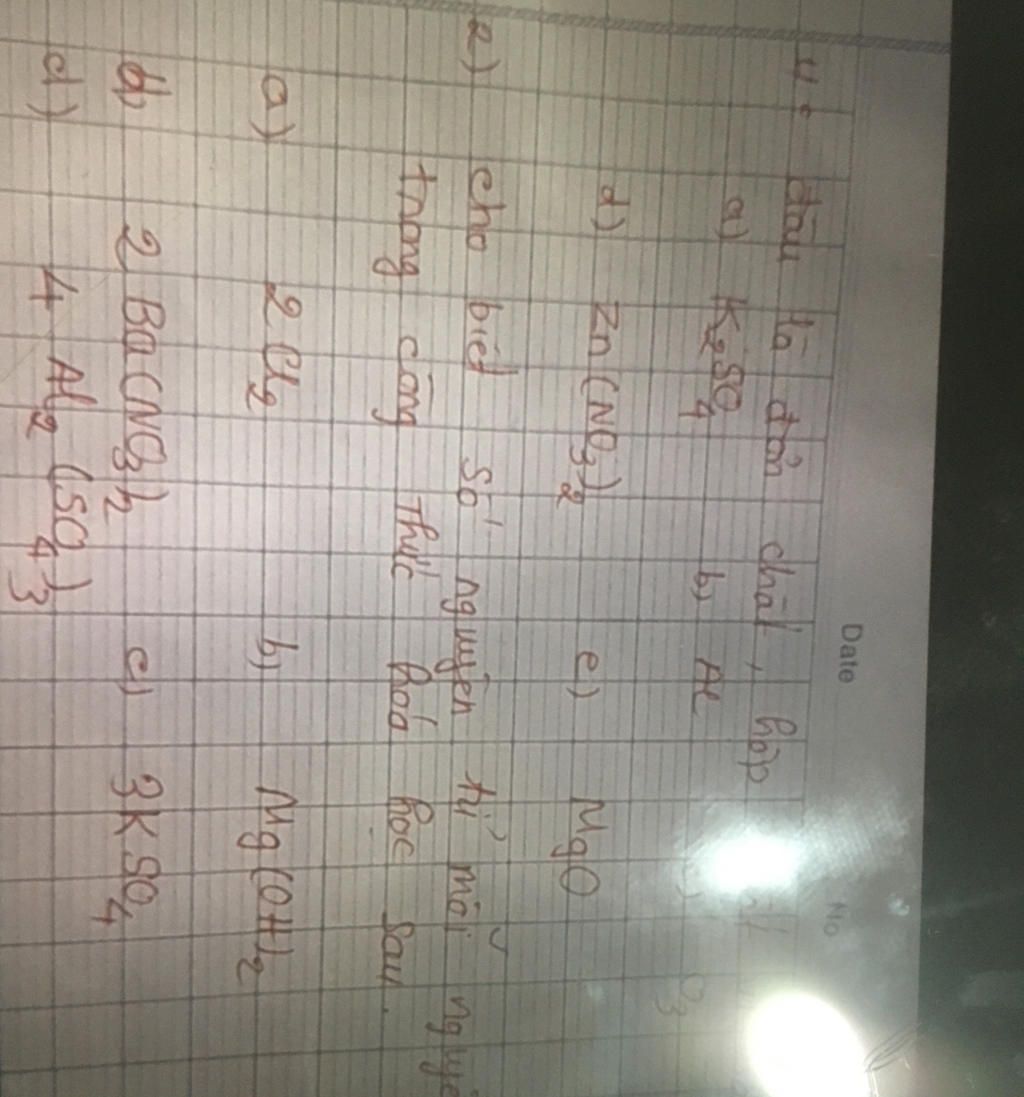 Date No
4. đâu là đơn chất, hợp
a) K2SO4 b) Al O3
d) Zn(NO3)2 e) MgO
2) cho biết số nguyên tử mỗi nguyê
trong công thức hoá học sau.
a) 2Cl2 b) Mg(OH)2
2 Ba(NO3)2 c) 3KSO4
d) 4 Al2(SO4)3